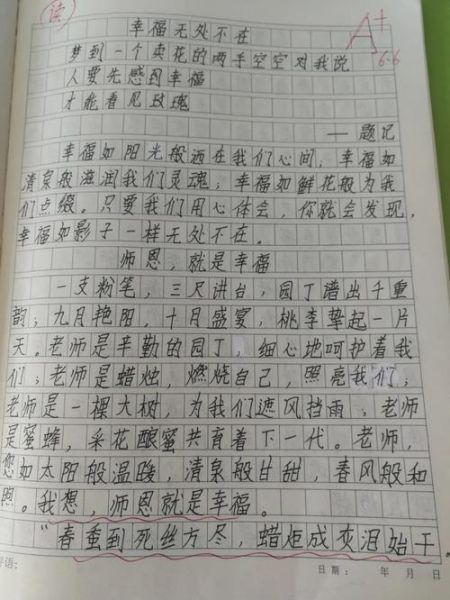 读
A+
6.6
幸福无处不在
梦到一个卖花的两手空空对我说
人要先感到幸福
才能看见玫瑰
——题记
幸福如阳光般洒在我们心间，幸福如
清泉般滋润我们灵魂，幸福如鲜花般为我
们点缀。只要我们用心体会，你就会发现，
幸福如影子一样无处不在。
师恩，就是幸福
一支粉笔，三尺讲台，园丁谱出千重
韵；九月艳阳，十月盛宴，桃李挚起一片
天。老师是辛勤的园丁，细心地呵护着我
们；老师是蜡烛，燃烧自己，照亮我们；
老师是一棵大树，为我们遮风挡雨；老师
是蜜蜂，采花酿蜜共育着下一代。老师，
您如太阳般温暖，清泉般甘甜，春风般和
煦。我想，师恩就是幸福。
“春蚕到死丝方尽，蜡炬成灰泪始干。
评语：
日期：　年　月　日